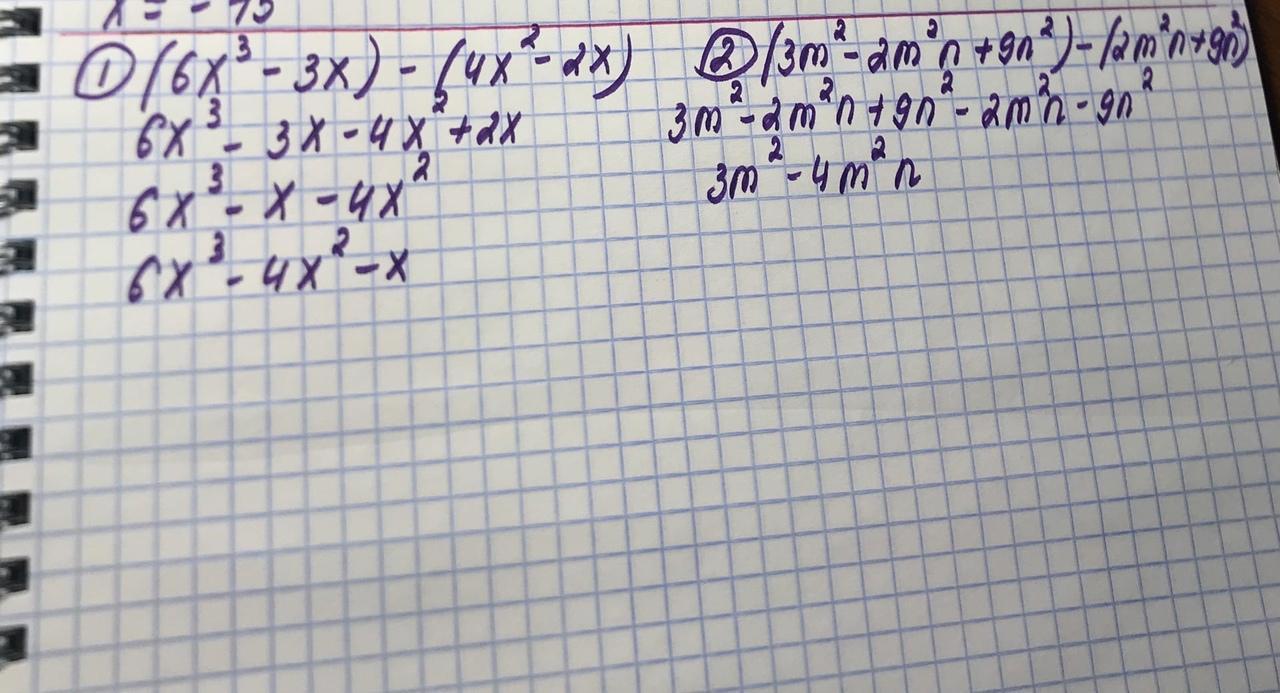 x = - 15
① (6x³ - 3x) - (4x² - 2x)
6x³ - 3x - 4x² + 2x
6x³ - x - 4x²
6x³ - 4x² - x
② (3m² - 2m²n + 9n²) - (2m²n + 9n²)
3m² - 2m²n + 9n² - 2m²n - 9n²
3m² - 4m²n